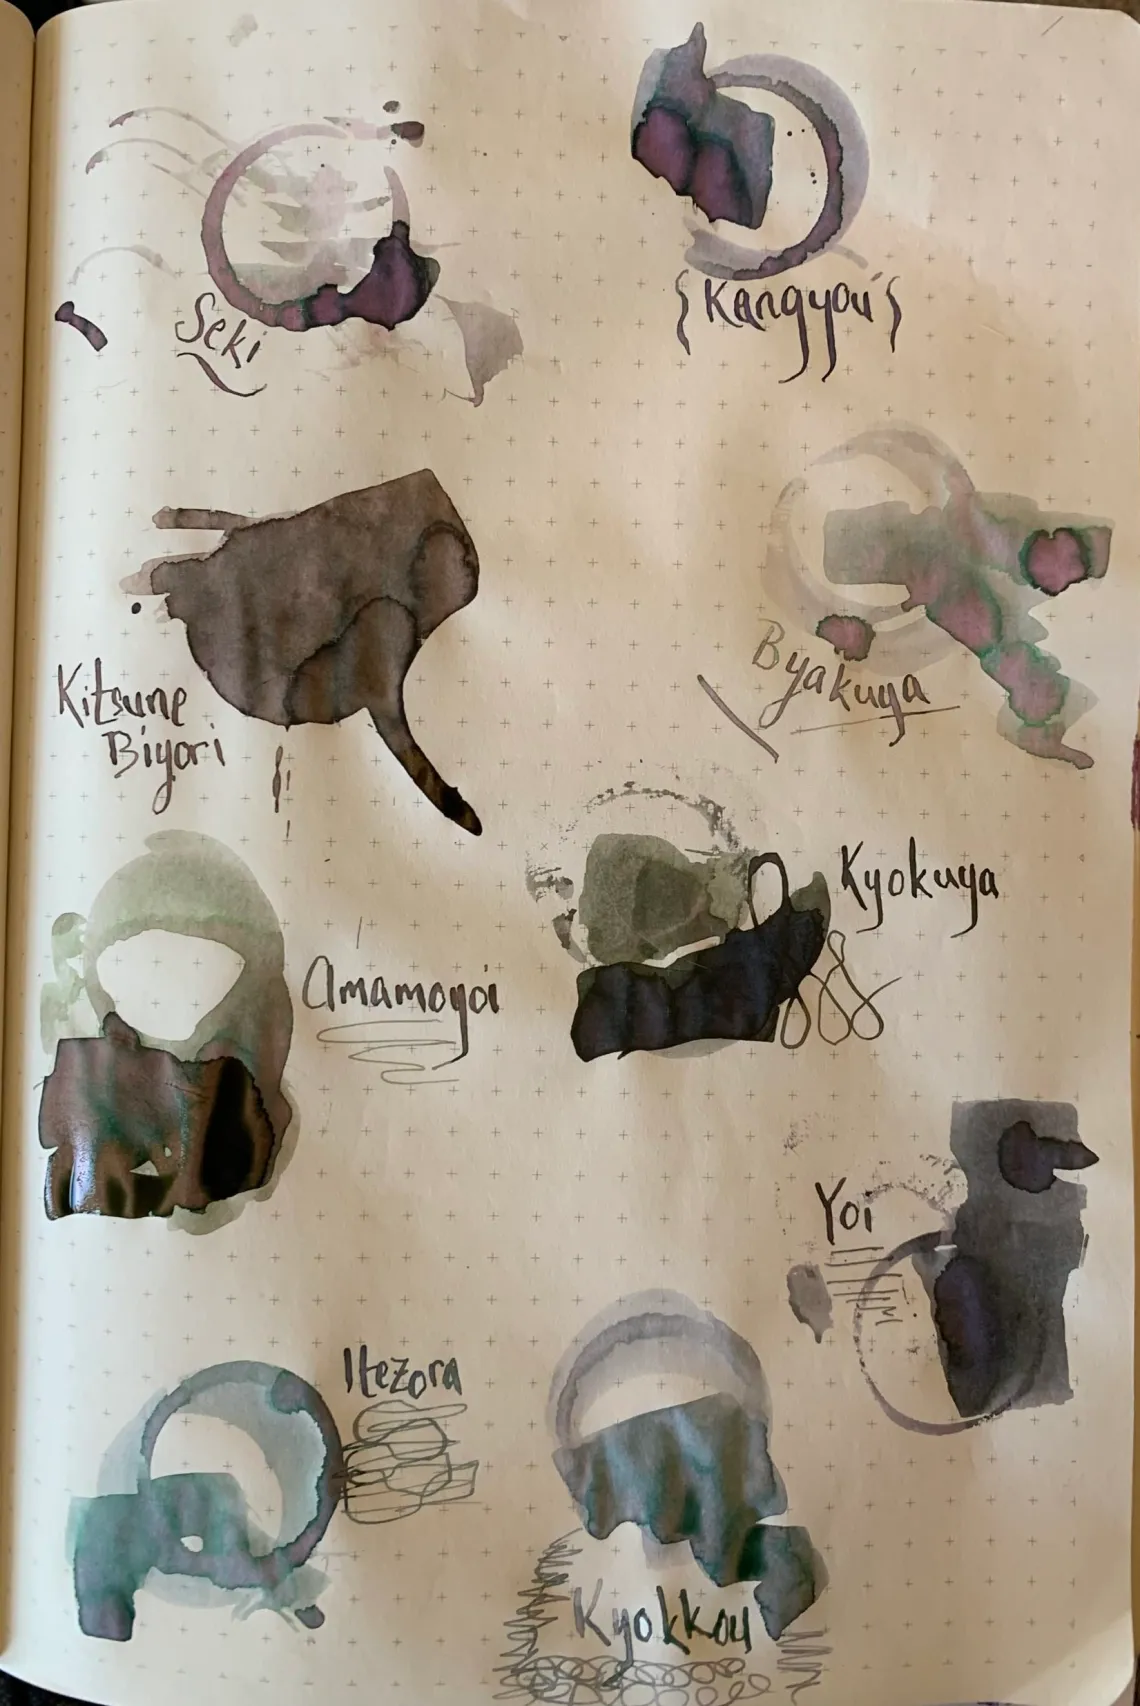 Seki
{Kangyou}
Kitsune
Biyori
Byakuya
Kyokuya
Amamoyoi
Yoi
Itezora
Kyokkou